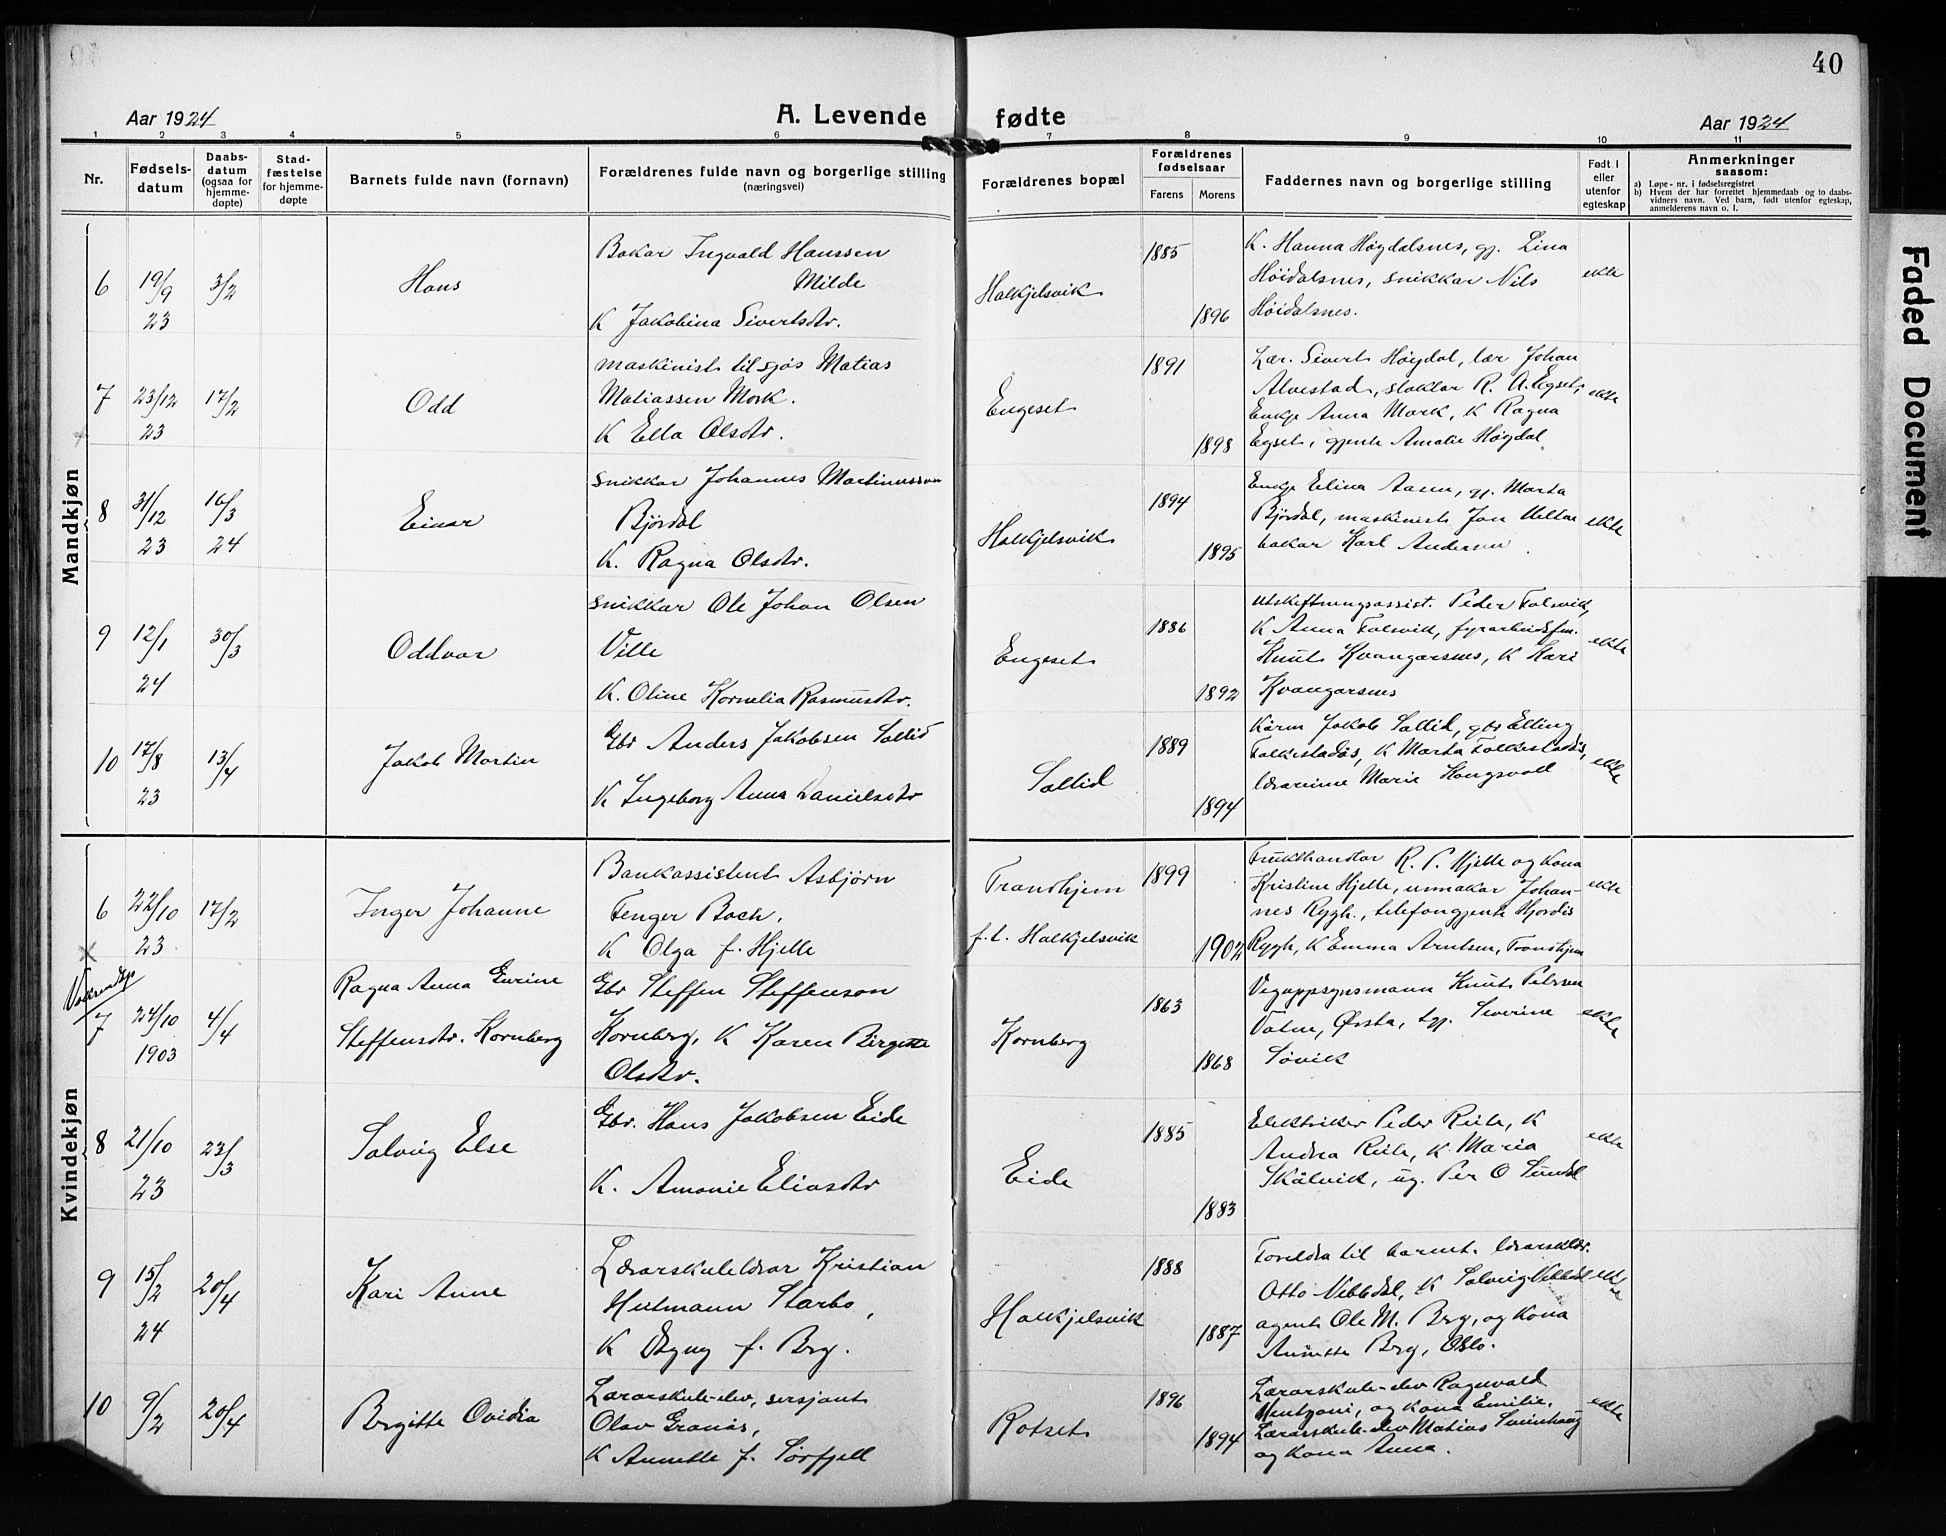 40
Aar 1924
A. Levende fødte
Aar 1924
1 2 3 4 5 6 7 8 9 10 11
Nr.
Fødsels-
datum
Daabs-
datum
(ogsaa for
hjemme-
døpte)
Stad-
fæstelse
for hjemme-
døpte
Barnets fulde navn (fornavn)
Forældrenes fulde navn og borgerlige stilling
(næringsvei)
Forældrenes bopæl
Forældrenes
fødselsaar
Farens Morens
Faddernes navn og borgerlige stilling
Født i
eller
utenfor
egteskap
Anmerkninger
saasom:
a) Løpe-nr. i fødselsregistret
b) Hvem der har forrettet hjemmedaab og to daabs-
vidners navn. Ved barn, født utenfor egteskap,
anmelderens navn o. l.
Mandkjøn
6
19/9
23
3/2
Hans
Bakar Ingvald Hanssen
Milde
K Jakobina Sivertsdtr.
Halkjelsvik
1885
1896
K. Hanna Høgdalsnes, gj. Lina
Høidalsnes, snikkar Nils
Høidalsnes.
ekte
7
23/12
23
17/2
Odd
maskinist til sjøs Matias
Matiassen Mork.
K Ella Olsdtr.
Engeset
1891
1898
Lær. Sivert Høydal, lær Johan
Alvestad, slaktar R. A. Egset,
Enkje Anna Mork, K Ragna
Egset, gjente Amalie Høydal
ekte
8
31/12
23
16/3
24
Einar
snikkar Johannes Martinusson
Bjørdal
K. Ragna Olsdtr.
Halkjelsvik
1894
1895
Enkje Elina Aasen, gj. Marta
Bjørdal, maskinist Jon
bakar Karl Andersen
ekte
9
12/1
24
30/3
Oddvar
snikkar Ole Johan Olsen
Ville
K. Oline Kornelia Rasmusdtr.
Engeset
1886
1892
Utskiftningsassist. Peder Folsvik,
K Anna Folsvik, fyrarbeidsfm.
Knut Kvangarsnes, K Kari
Kvangarsnes
ekte
10
17/8
23
13/4
Jakob Martin
Gbr Anders Jakobsen Sollid
K Ingeborg Anna Danielsdtr
Sollid
1889
1894
Kårm Jakob Sollid, gbr Elling
Folkestadås, K Marta Folkestadås,
lærarinne Marie Hongsvoll
ekte
Kvindekjøn
6
22/10
23
17/2
Inger Johanne
Bankassistent Asbjørn
Fenger Bach.
K Olga f. Hjelle
Trondhjem
f.t. Halkjelsvik
1899
1902
Frukthandlar R. P. Hjelle og kona
Kristine Hjelle, urmakar Johan-
nes Rygh, telefongjente Hjordis
Rygh, K Emma Arntsen, Trondhjem
ekte
Voksendåp
7
24/10
1903
4/4
Ragna Anna Gurine
Steffensdtr. Kornberg
Gbr Steffen Steffenson
Kornberg, K Karen Birgitte
Olsdtr.
Kornberg
1863
1868
Vegoppsynsmann Knut Petersen
Vatne, Ørsta, tgj. Severine
Søvik
ekte
8
21/10
23
23/3
Solveig Else
Gbr. Hans Jakobsen Eide
K. Amanie Eliasdtr
Eide
1885
1883
Elektriker Peder Reite, K
Andrea Reite, K Maria
Skålvik, ug. Per O Sundal
ekte
9
15/2
24
20/4
Kari Anne
Lærarskulelærar Kristian
Heitmann Starbo,
K Dagny f. Berg.
Halkjelsvik
1888
1887
Foreldra til barnet. lærarsklær.
Otto Vebbedal, K Solveig Vebbedal
agent Ole M. Berg, og kona
Annette Berg, Oslo.
ekte
10
9/2
20/4
Birgitte Ovidia
Lærarskule-elev, sersjant
Olav Granås,
K Annette f. Sørfjell
Rotset
1896
1894
Lærarskule-elev Ragnvald
Mentzoni, og kona Emilie,
Lærarskule-elev Matias Sveinhaug
og kona Anna.
ekte
Faded Document